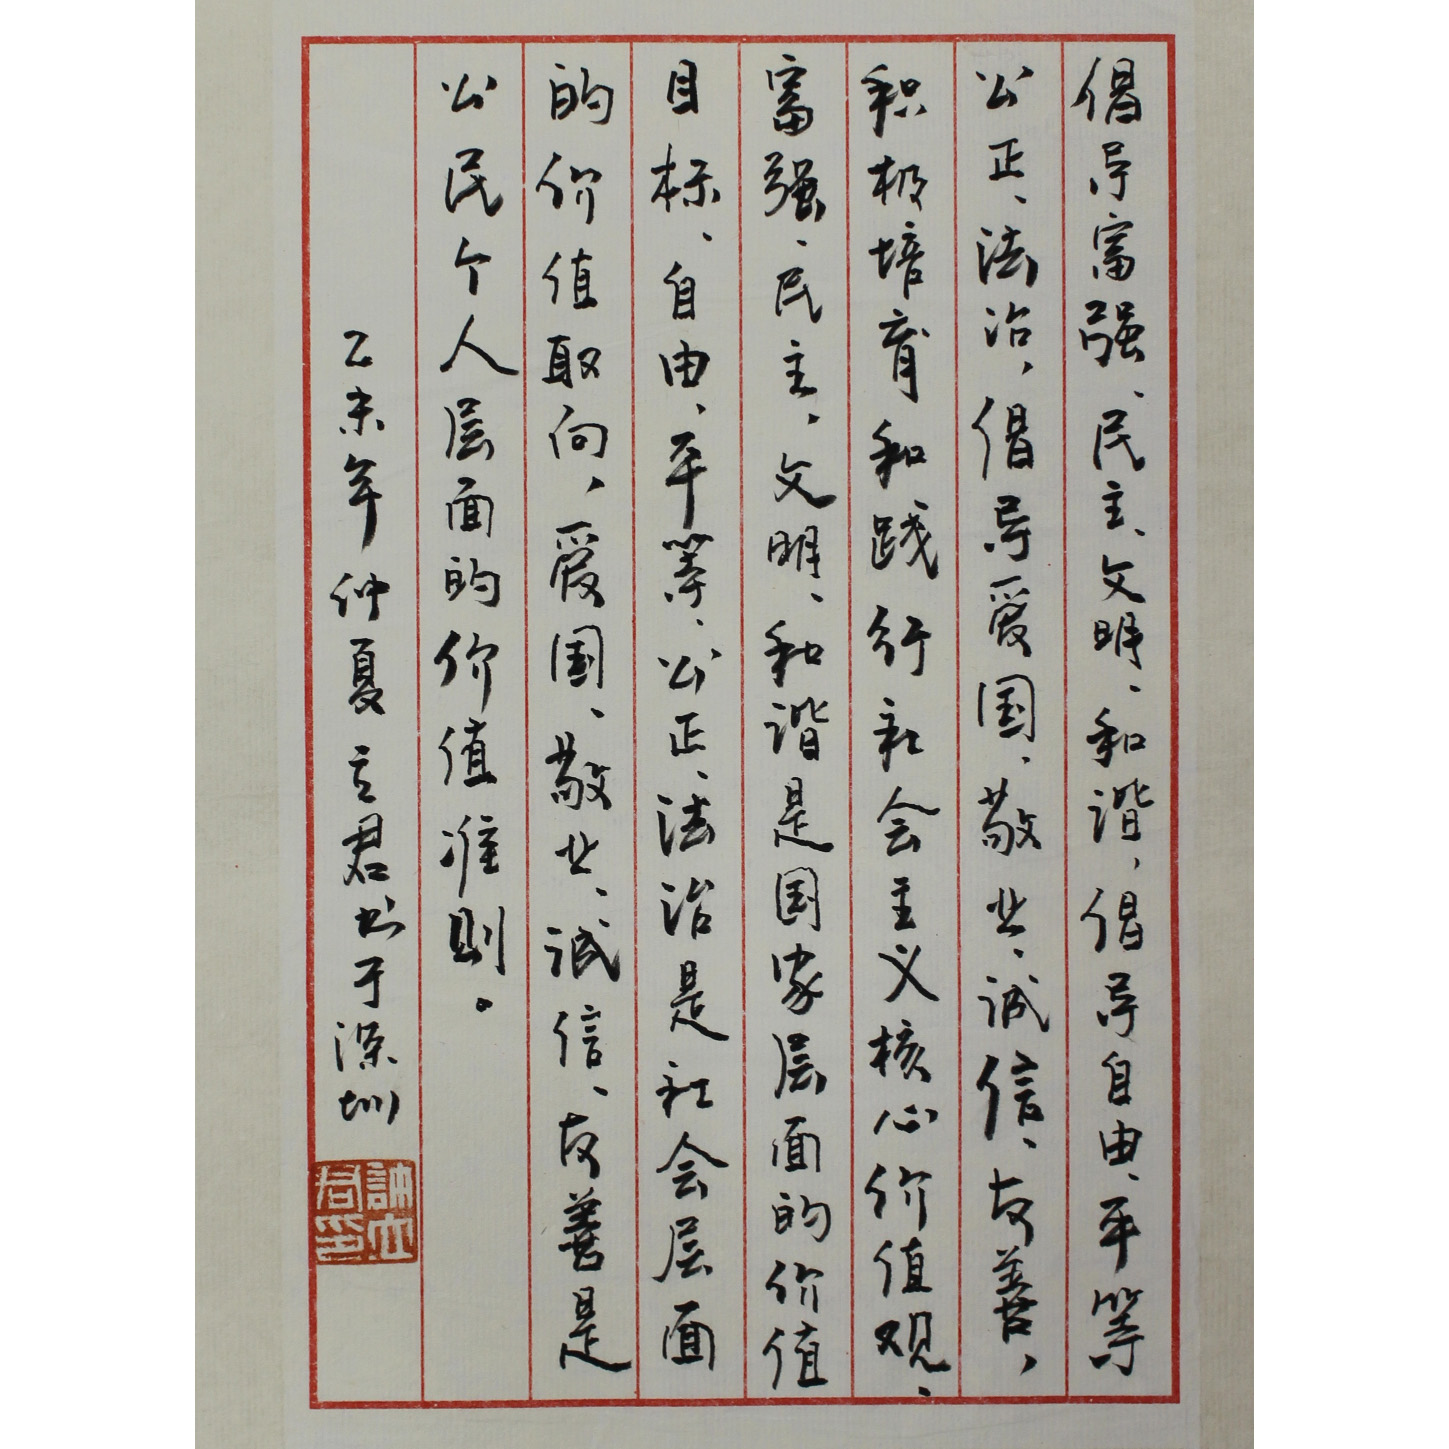 倡导富强、民主、文明、和谐，倡导自由、平等
公正、法治，倡导爱国、敬业、诚信、友善，
积极培育和践行社会主义核心价值观、
富强、民主，文明、和谐是国家层面的价值
目标、自由、平等、公正、法治是社会层面
的价值取向，爱国、敬业、诚信、友善是
公民个人层面的价值准则。
乙未年仲夏立君书于深圳